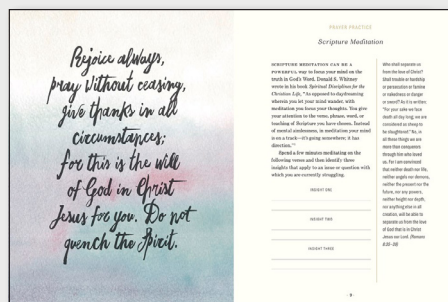 Rejoice always,
pray without ceasing,
give thanks in all
circumstances;
for this is the will
of God in Christ
Jesus for you. Do not
quench the Spirit.
PRAYER PRACTICE
Scripture Meditation
SCRIPTURE MEDITATION CAN BE A
POWERFUL way to focus your mind on the
truth in God's Word. Donald S. Whitney
wrote in his book Spiritual Disciplines for the
Christian Life, "As opposed to daydreaming
wherein you let your mind wander, with
meditation you focus your thoughts. You give
your attention to the verse, phrase, word, or
teaching of Scripture you have chosen. Instead
of mental aimlessness, in meditation your mind
is on a track—it's going somewhere; it has
direction."
Spend a few minutes meditating on the
following verses and then identify three
insights that apply to an issue or question with
which you are currently struggling.
INSIGHT ONE
INSIGHT TWO
INSIGHT THREE
Who shall separate us
from the love of Christ?
Shall trouble or hardship
or persecution or famine
or nakedness or danger
or sword? As it is written:
"For your sake we face
death all day long; we are
considered as sheep to
be slaughtered." No, in
all these things we are
more than conquerors
through him who loved
us. For I am convinced
that neither death nor life,
neither angels nor demons,
neither the present nor the
future, nor any powers,
neither height nor depth,
nor anything else in all
creation, will be able to
separate us from the love
of God that is in Christ
Jesus our Lord. (Romans
8:35–39)